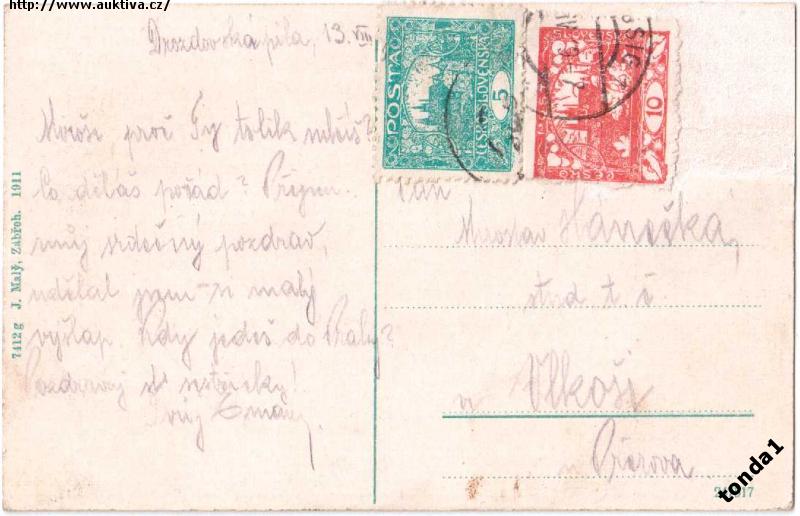 http://www.auktiva.cz/
Drozdovská pila, 13. VIII
Mirošu, proč Ty tolik mlčíš?
Co děláš pořád? Přijmi
můj srdečný pozdrav,
udělal jsem si malý
výšlap. Kdy jedeš do Prahy?
Pozdravuj sestřičky!
Tvůj
7412g J. Malý, Zábřeh. 1911
POŠTA
5
ČESKO-SLOVENSKÁ
SLOVENSKÁ
10
ČESKO
Pan
Miroslav Hanečka,
stud t. č.
v Vlkoši
u Přerova
tonda1